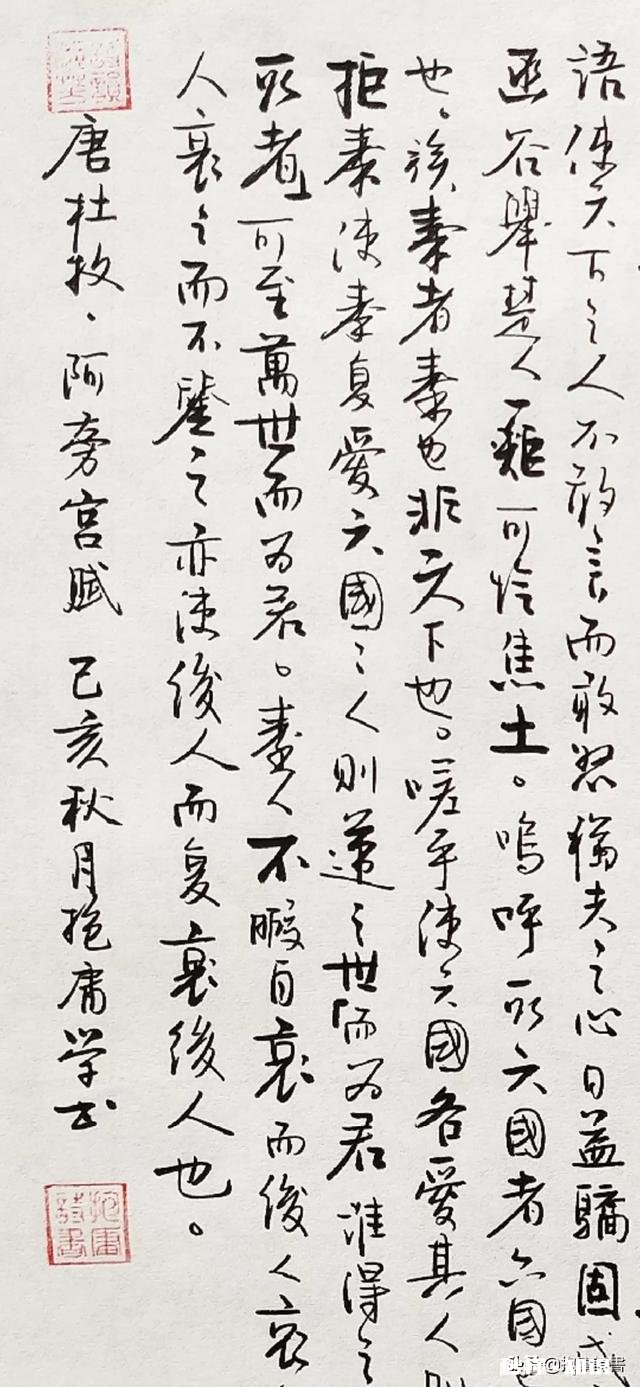 語使天下之人不敢言而敢怒獨夫之心日益驕固戍
函谷舉楚人一炬可怜焦土。嗚呼灭六國者六國
也、族秦者秦也非天下也。嗟乎使六國各愛其人則
拒秦使秦复愛六國之人則遞三世「而为君誰得之
灭者」可至萬世而为君。秦人不暇自哀而後人哀
人哀之而不鑒之亦使後人而复哀後人也。
唐杜牧、阿旁宫賦 己亥秋月抱庸学书